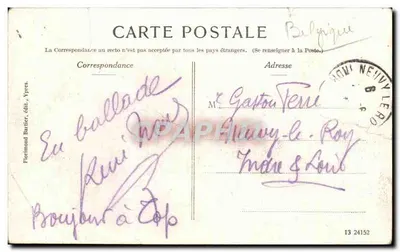 CARTE POSTALE
Belgique
La Correspondance au recto n'est pas acceptée par tous les pays étrangers. (Se renseigner à la Poste)
Correspondance
Adresse
En ballade
René
Bonjour à Top
Mr Gaston Ferré
Neuvy-le-Roy
Indre & Loire
NEUVY-LE-RO
Florimond Bartier, édit., Ypres.
13 24152